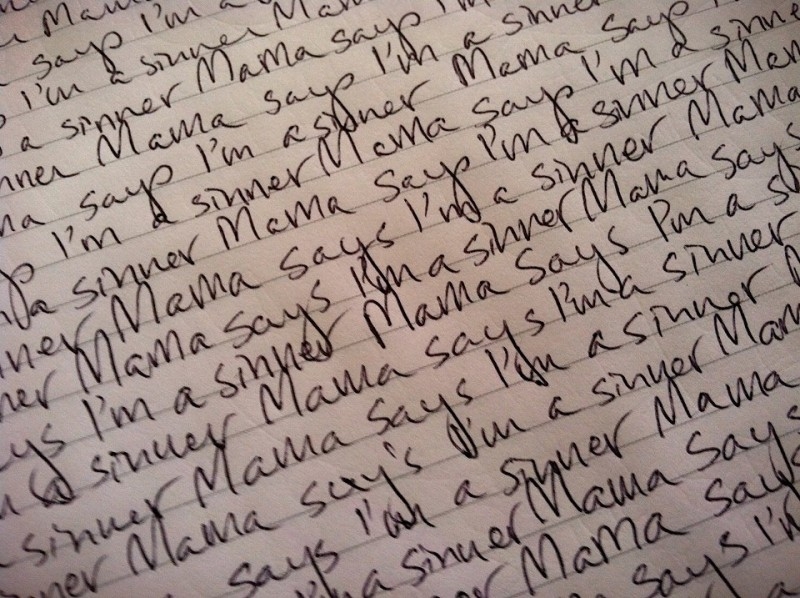 Mama
says I'm a sinner Mama
I'm a sinner Mama says I'm
a sinner Mama says I'm a sinner
sinner Mama says I'm a sinner Mama says
says I'm a sinner Mama says I'm a sinner
I'm a sinner Mama says I'm a sinner Mama
a sinner Mama says I'm a sinner Mama
Mama says I'm a sinner Mama says
ner Mama says I'm a sinner Mama says I'm a
says I'm a sinner Mama says I'm a sinner
a sinner Mama says I'm a sinner
sinner Mama says I'm a sinner Mama
ner Mama say's I'm a sinner Mama
says I'm a sinner Mama says
I'm a sinner Mama says
Mama says I'm
says I'm